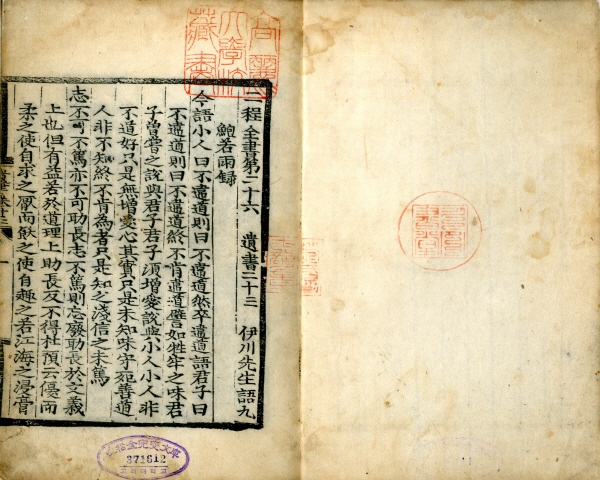 二程全書第二十六 遺書二十三 伊川先生語九
鮑若雨錄
今語小人曰不違道則曰不違道然卒違道語君子曰
不違道則曰不違道終不肯違道譬如牲牢之味君
子曾嘗之說與君子君子須增愛說與小人小人非
不道好只是無增愛心其實只是未知味守死善道
人非不知終不肯為者只是知之淺信之未篤
志不可不篤亦不可助長志不篤則忘廢助長於文義
上也但有益若於道理上助長反不得杜預云優而
柔之使自求之厭而飫之使自趨之若江海之浸膏
高麗大學校藏書
371612
고려대학교